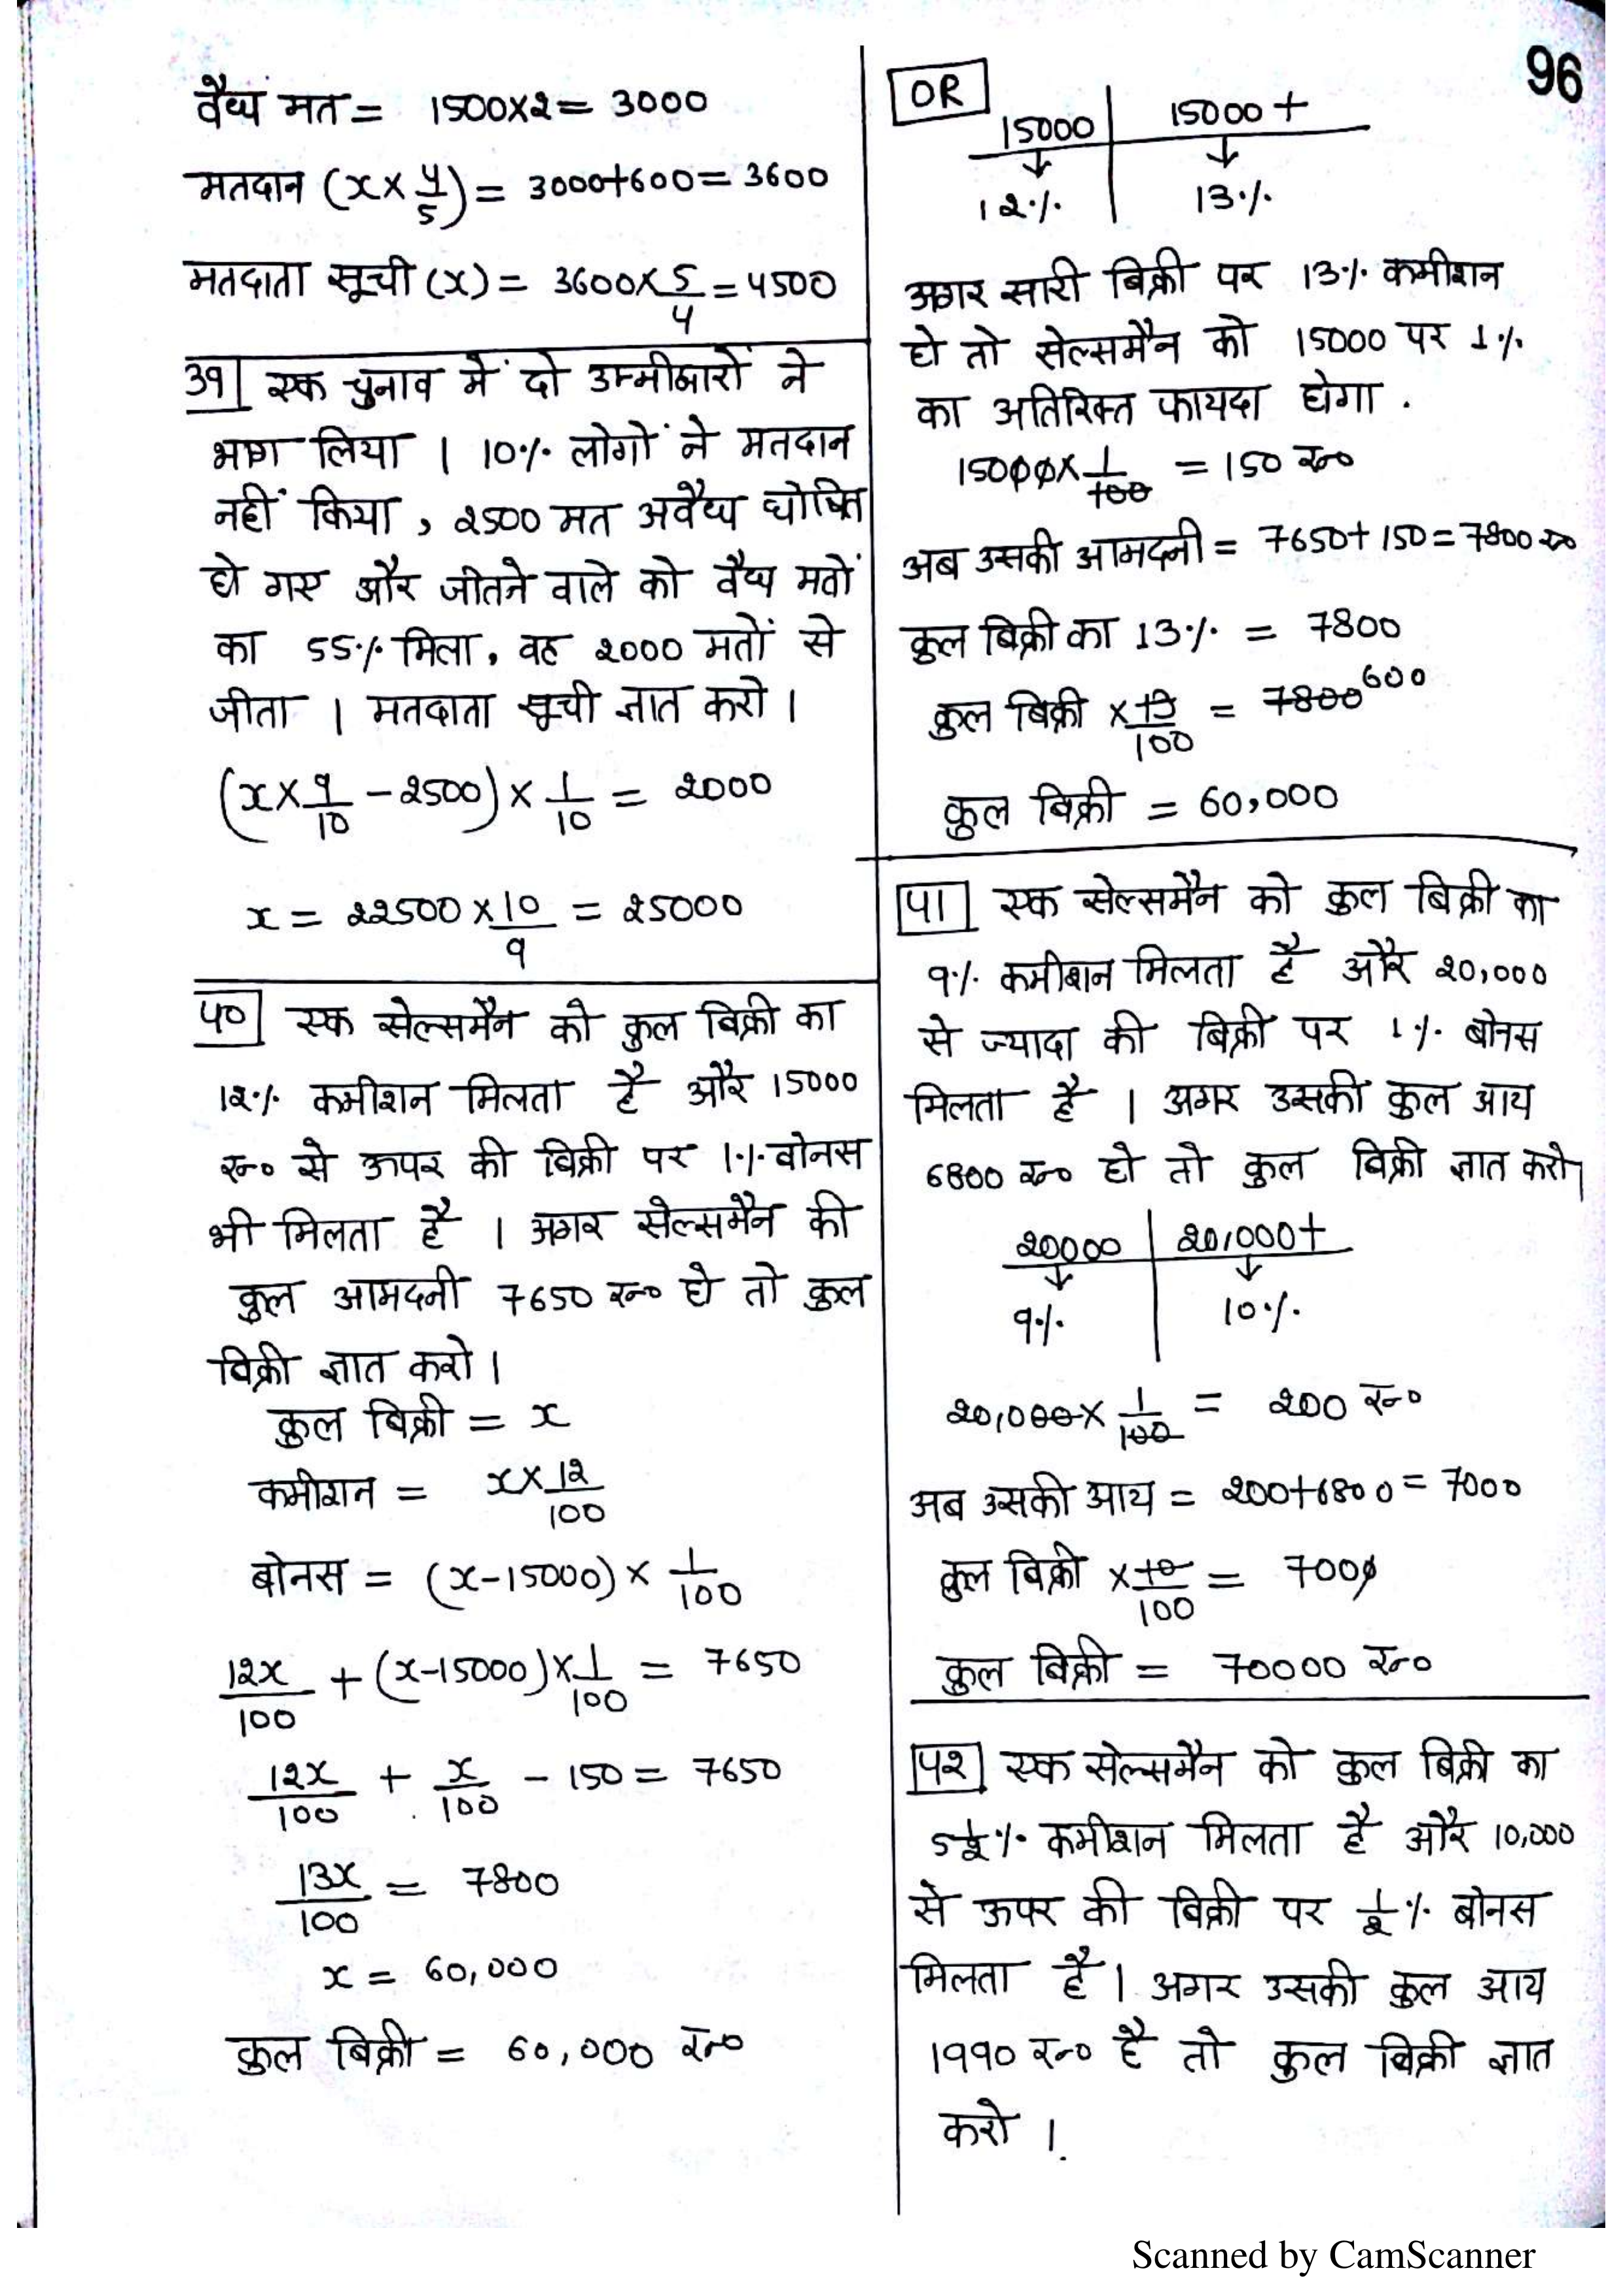 96
वैध्य मत = 1500×2 = 3000
मतदान (x × 4/5) = 3000+600 = 3600
मतदाता सूची (x) = 3600 × 5/4 = 4500
39] एक चुनाव में दो उम्मीदवारों ने
भाग लिया । 10% लोगों ने मतदान
नहीं किया , 2500 मत अवैध्य घोषित
हो गए और जीतने वाले को वैध्य मतों
का 55% मिला, वह 2000 मतों से
जीता । मतदाता सूची ज्ञात करो ।
(x × 9/10 - 2500) × 1/10 = 2000
x = 22500 × 10/9 = 25000
40] एक सेल्समैन को कुल बिक्री का
12% कमीशन मिलता है और 15000
रू० से ऊपर की बिक्री पर 1% बोनस
भी मिलता है । अगर सेल्समैन की
कुल आमदनी 7650 रू० हो तो कुल
बिक्री ज्ञात करो ।
कुल बिक्री = x
कमीशन = x × 12/100
बोनस = (x-15000) × 1/100
12x/100 + (x-15000) × 1/100 = 7650
12x/100 + x/100 - 150 = 7650
13x/100 = 7800
x = 60,000
कुल बिक्री = 60,000 रू०
OR
15000 | 15000 +
↓ ↓
12% | 13%
अगर सारी बिक्री पर 13% कमीशन
हो तो सेल्समैन को 15000 पर 1%
का अतिरिक्त फायदा होगा .
15000 × 1/100 = 150 रू०
अब उसकी आमदनी = 7650+150 = 7800 रू०
कुल बिक्री का 13% = 7800
कुल बिक्री × 13/100 = 7800 600
कुल बिक्री = 60,000
41] एक सेल्समैन को कुल बिक्री का
9% कमीशन मिलता है और 20,000
से ज्यादा की बिक्री पर 1% बोनस
मिलता है । अगर उसकी कुल आय
6800 रू० हो तो कुल बिक्री ज्ञात करो।
20000 | 20,000+
↓ ↓
9% | 10%
20,000 × 1/100 = 200 रू०
अब उसकी आय = 200+6800 = 7000
कुल बिक्री × 10/100 = 7000
कुल बिक्री = 70000 रू०
42] एक सेल्समैन को कुल बिक्री का
5 1/2 % कमीशन मिलता है और 10,000
से ऊपर की बिक्री पर 1/2 % बोनस
मिलता है । अगर उसकी कुल आय
1990 रू० है तो कुल बिक्री ज्ञात
करो ।
Scanned by CamScanner